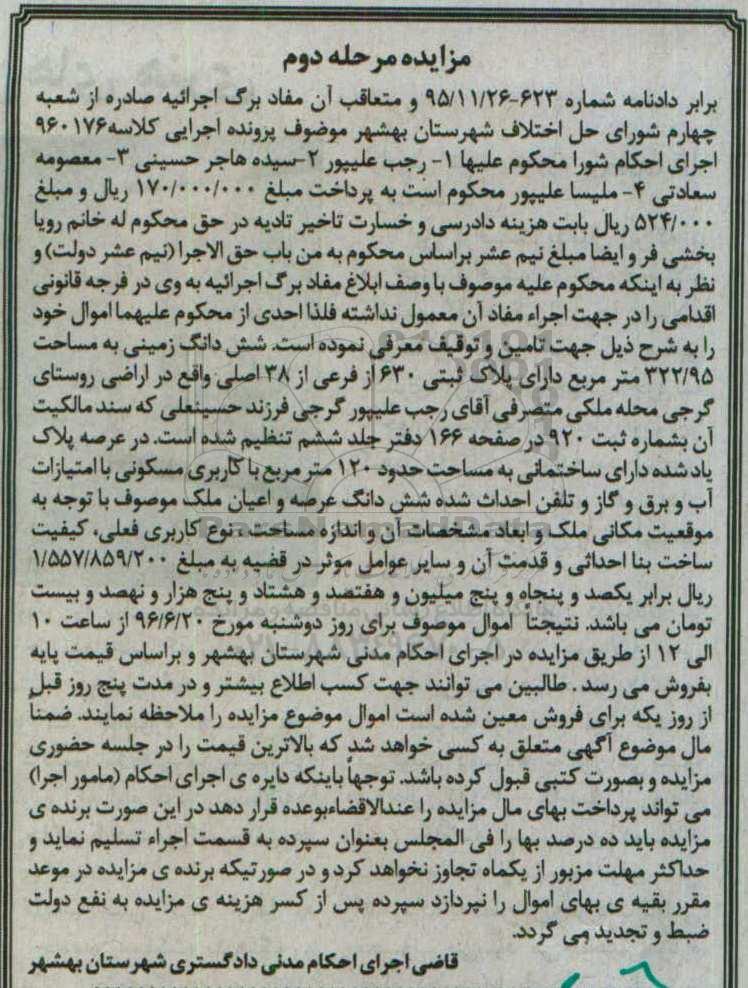 مزایده مرحله دوم
برابر دادنامه شماره ۶۲۳-۹۵/۱۱/۲۶ و متعاقب آن مفاد برگ اجرائیه صادره از شعبه
چهارم شورای حل اختلاف شهرستان بهشهر موضوف پرونده اجرایی کلاسه۹۶۰۱۷۶
اجرای احکام شورا محکوم علیها ۱- رجب علیپور ۲-سیده هاجر حسینی ۳- معصومه
سعادتی ۴- ملیسا علیپور محکوم است به پرداخت مبلغ ۱۷۰/۰۰۰/۰۰۰ ریال و مبلغ
۵۲۴/۰۰۰ ریال بابت هزینه دادرسی و خسارت تاخیر تادیه در حق محکوم له خانم رویا
بخشی فر و ایضا مبلغ نیم عشر براساس محکوم به من باب حق الاجرا (نیم عشر دولت) و
نظر به اینکه محکوم علیه موصوف با وصف ابلاغ مفاد برگ اجرائیه به وی در فرجه قانونی
اقدامی را در جهت اجراء مفاد آن معمول نداشته فلذا احدی از محکوم علیهما اموال خود
را به شرح ذیل جهت تامین و توقیف معرفی نموده است. شش دانگ زمینی به مساحت
۳۲۲/۹۵ متر مربع دارای پلاک ثبتی ۶۳۰ از فرعی از ۳۸ اصلی واقع در اراضی روستای
گرجی محله ملکی متصرفی آقای رجب علیپور گرجی فرزند حسینعلی که سند مالکیت
آن بشماره ثبت ۹۲۰ در صفحه ۱۶۶ دفتر جلد ششم تنظیم شده است. در عرصه پلاک
یاد شده دارای ساختمانی به مساحت حدود ۱۲۰ متر مربع با کاربری مسکونی با امتیازات
آب و برق و گاز و تلفن احداث شده شش دانگ عرصه و اعیان ملک موصوف با توجه به
موقعیت مکانی ملک و ابعاد مشخصات آن و اندازه مساحت، نوع کاربری فعلی، کیفیت
ساخت بنا احداثی و قدمت آن و سایر عوامل موثر در قضیه به مبلغ ۱/۵۵۷/۸۵۹/۲۰۰
ریال برابر یکصد و پنجاه و پنج میلیون و هفتصد و هشتاد و پنج هزار و نهصد و بیست
تومان می باشد. نتیجتاً اموال موصوف برای روز دوشنبه مورخ ۹۶/۶/۲۰ از ساعت ۱۰
الی ۱۲ از طریق مزایده در اجرای احکام مدنی شهرستان بهشهر و براساس قیمت پایه
بفروش می رسد . طالبین می توانند جهت کسب اطلاع بیشتر و در مدت پنج روز قبل
از روز یکه برای فروش معین شده است اموال موضوع مزایده را ملاحظه نمایند. ضمناً
مال موضوع آگهی متعلق به کسی خواهد شد که بالاترین قیمت را در جلسه حضوری
مزایده و بصورت کتبی قبول کرده باشد. توجهاً باینکه دایره ی اجرای احکام (مامور اجرا)
می تواند پرداخت بهای مال مزایده را عندالاقضاءبوعده قرار دهد در این صورت برنده ی
مزایده باید ده درصد بها را فی المجلس بعنوان سپرده به قسمت اجراء تسلیم نماید و
حداکثر مهلت مزبور از یکماه تجاوز نخواهد کرد و در صورتیکه برنده ی مزایده در موعد
مقرر بقیه ی بهای اموال را نپردازد سپرده پس از کسر هزینه ی مزایده به نفع دولت
ضبط و تجدید می گردد.
قاضی اجرای احکام مدنی دادگستری شهرستان بهشهر